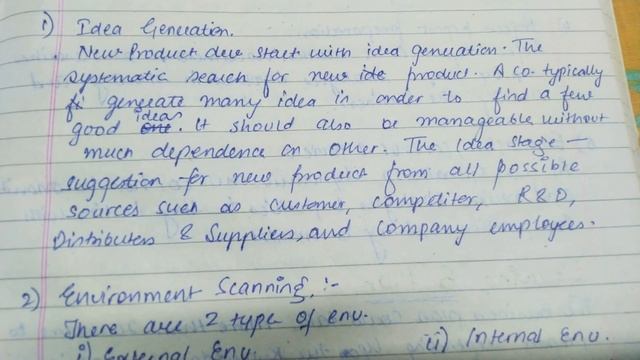 1) Idea Generation.
New Product dev start with idea generation. The
systematic search for new ide product. A co. typically
generate many idea in order to find a few
good ideas. It should also be manageable without
much dependence on other. The Idea stage —
suggestion for new product from all possible
sources such as customer, competitor, R&D,
Distributers & Suppliers, and company employees.
2) Environment Scanning :-
There are 2 type of env.
i) External Env. ii) Internal Env.